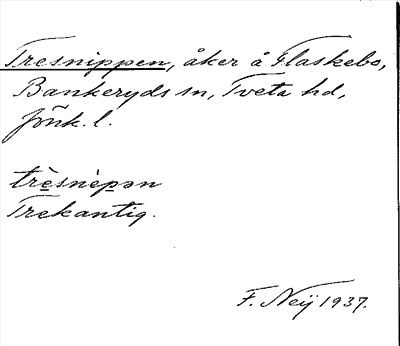 Tresnippen, åker å Flaskebo,
Bankeryds sn, Tveta hd,
Jönk. l.
trèsnìpən
Trekantig.
F. Neij 1937.